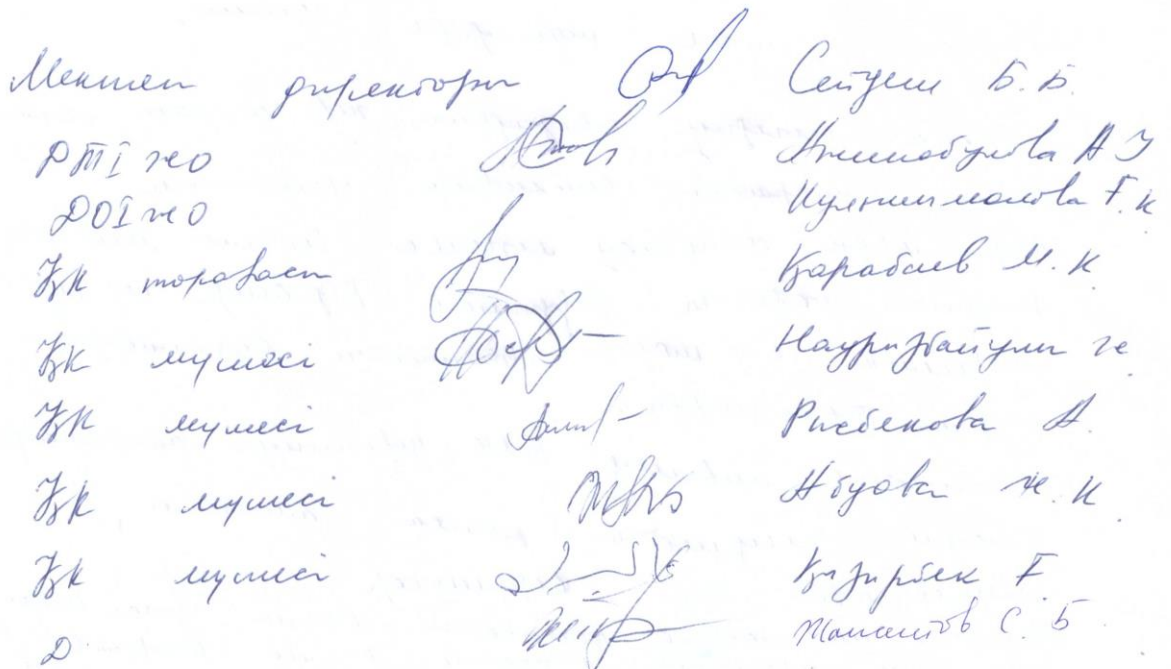 Мектеп директоры Сейдеш Б.Б.
РТІ жО Ажинабулова А Ј
ДОІ жО Кулнышманова Ғ.К
ҚК төрағасы Қарабаев М.К
ҚК мүшесі Наурызбайұлы Ж
ҚК мүшесі Рысбекова А.
ҚК мүшесі Абуова Ж.К
ҚК мүшесі Қыдырбек Ғ
Д С. Б